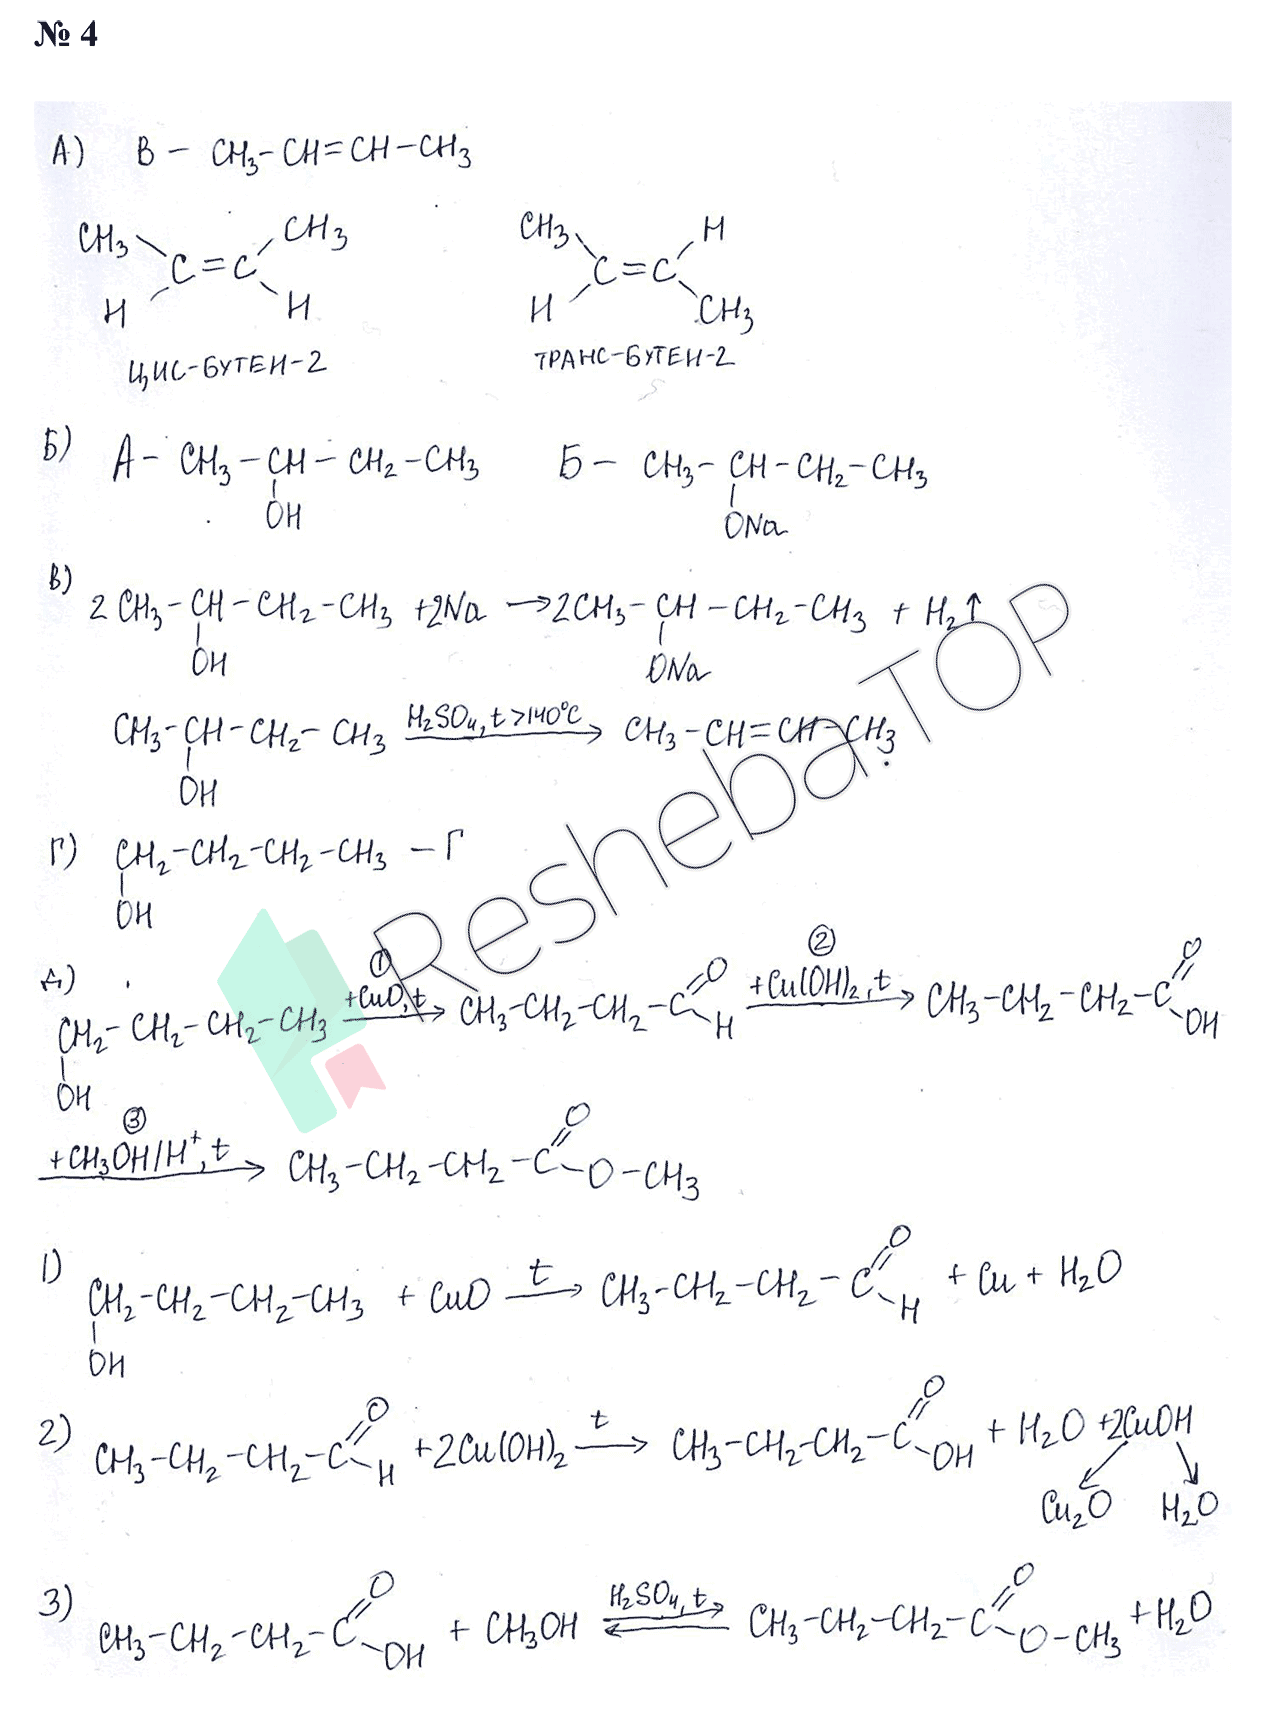 № 4
А) В – CH₃–CH=CH–CH₃
CH₃ CH₃ CH₃ H
C=C C=C
H H H CH₃
ЦИС-БУТЕН-2 ТРАНС-БУТЕН-2
Б) А – CH₃–CH–CH₂–CH₃ Б – CH₃–CH–CH₂–CH₃
OH ONa
В) 2CH₃–CH–CH₂–CH₃ +2Na → 2CH₃–CH–CH₂–CH₃ + H₂↑
OH ONa
CH₃–CH–CH₂–CH₃ H₂SO₄, t >140°C → CH₃–CH=CH–CH₃
OH
Г) CH₂–CH₂–CH₂–CH₃ – Г
OH
Resheba.TOP
Д) CH₂–CH₂–CH₂–CH₃ ① +CuO, t → CH₃–CH₂–CH₂–C=O H ② +Cu(OH)₂, t → CH₃–CH₂–CH₂–C=O OH
OH
③ +CH₃OH/H⁺, t → CH₃–CH₂–CH₂–C=O O–CH₃
1) CH₂–CH₂–CH₂–CH₃ + CuO t → CH₃–CH₂–CH₂–C=O H + Cu + H₂O
OH
2) CH₃–CH₂–CH₂–C=O H +2Cu(OH)₂ t → CH₃–CH₂–CH₂–C=O OH + H₂O +2CuOH
Cu₂O H₂O
3) CH₃–CH₂–CH₂–C=O OH + CH₃OH H₂SO₄, t ⇄ CH₃–CH₂–CH₂–C=O O–CH₃ +H₂O